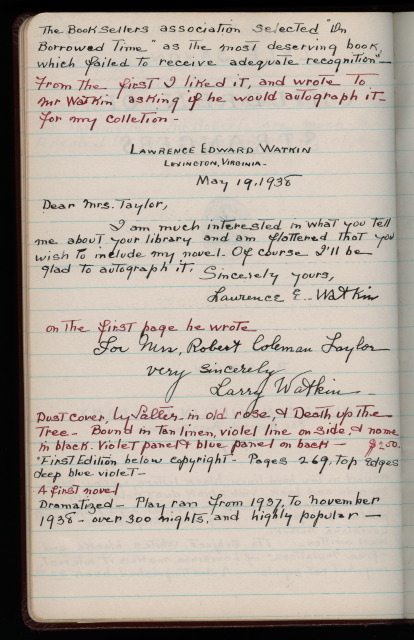 The Booksellers association selected "On
Borrowed Time" as the most deserving book,
which failed to receive adequate recognition"—
From the first I liked it, and wrote to
Mr Watkin asking if he would autograph it—
for my colletion -
Lawrence Edward Watkin
Lexington, Virginia-
May 19, 1938
Dear Mrs. Taylor,
I am much interested in what you tell
me about your library and am flattered that you
wish to include my novel. Of course I'll be
glad to autograph it. Sincerely yours,
Lawrence E. Watkin
on the first page he wrote
For Mrs. Robert Coleman Taylor
very sincerely
Larry Watkin
Dust cover, by in old rose, & Death up the
Tree - Bound in tan linen, violet line on side, & name
in black. Violet panel & blue panel on back — $2.50.
"First Edition below copyright - Pages 269, top edges
deep blue violet -
A first novel
Dramatized - Play ran from 1937, to november
1938 - over 300 nights, and highly popular —